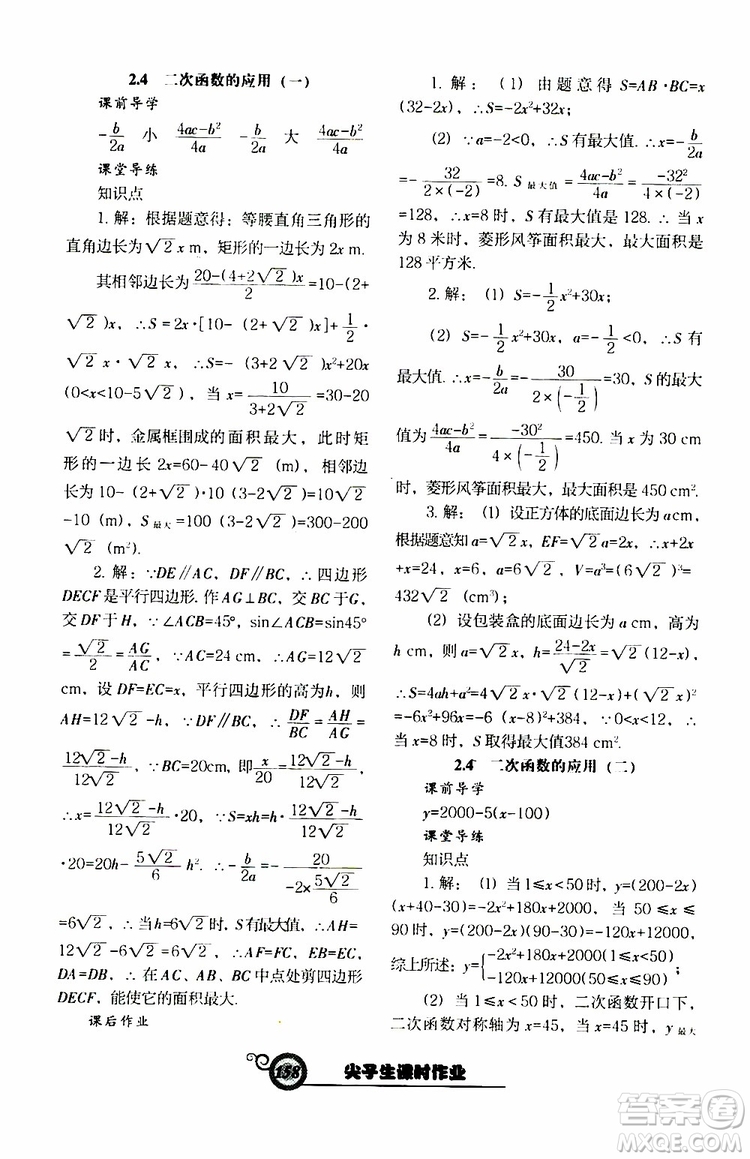 2.4 二次函数的应用(一)
课前导学
-b/2a 小 (4ac-b²)/4a -b/2a 大 (4ac-b²)/4a
课堂导练
知识点
1. 解:根据题意得:等腰直角三角形的
直角边长为√2x m, 矩形的一边长为2x m.
其相邻边长为(20-(4+2√2)x)/2=10-(2+
√2)x, ∴S=2x·[10-(2+√2)x]+1/2·
√2x·√2x ∴S=-(3+2√2)x²+20x
(0<x<10-5√2). 当x=10/(3+2√2)=30-20
√2时, 金属框围成的面积最大, 此时矩
形的一边长2x=60-40√2 (m), 相邻边
长为10-(2+√2)·10(3-2√2)=10√2
-10 (m), S最大=100(3-2√2)=300-200
√2 (m²).
2. 解:∵DE∥AC, DF∥BC, ∴四边形
DECF是平行四边形. 作AG⊥BC, 交BC于G,
交DF于H, ∵∠ACB=45°, sin∠ACB=sin45°
=√2/2=AG/AC, ∵AC=24cm, ∴AG=12√2
cm, 设DF=EC=x, 平行四边形的高为h, 则
AH=12√2-h, ∵DF∥BC, ∴DF/BC=AH/AG=
(12√2-h)/12√2, ∵BC=20cm, 即x/20=(12√2-h)/12√2,
∴x=(12√2-h)/12√2·20, ∵S=xh=h·(12√2-h)/12√2
·20=20h-5√2/6 h². ∴-b/2a=-20/(-2×5√2/6)
=6√2, ∴当h=6√2时, S有最大值, ∴AH=
12√2-6√2=6√2. ∵AG=12√2, ∴AH=GH,
DA=DB, ∴在AC、BC中点处剪四边形
DECF, 能使它的面积最大.
课后作业
1. 解:(1)由题意得S=AB·BC=x
(32-2x), ∴S=-2x²+32x;
(2)∵a=-2<0, ∴S有最大值. ∴x=-b/2a
=-32/(2×(-2))=8. S最大值=(4ac-b²)/4a=-32²/(4×(-2))
=128, ∴x=8时, S有最大值是128. ∴当x
为8米时, 菱形风筝面积最大, 最大面积是
128平方米.
2. 解:(1)S=-1/2x²+30x;
(2)∵S=-1/2x²+30x, a=-1/2<0, ∴S有
最大值. ∴x=-b/2a=-30/(2×(-1/2))=30, S的最大
值为(4ac-b²)/4a=-30²/(4×(-1/2))=450. 当x为30 cm
时, 菱形风筝面积最大, 最大面积是450 cm².
3. 解:(1)设正方体的底面边长为a cm,
根据题意知a=√2x, EF=√2a=2x, ∴x+2x
+x=24, x=6, a=6√2, V=a³=(6√2)³=
432√2 (cm³);
(2)设包装盒的底面边长为a cm, 高为
h cm, 则a=√2x, h=(24-2x)/√2=√2(12-x),
∴S=4ah+a²=4√2x·√2(12-x)+(√2x)²
=-6x²+96x=-6(x-8)²+384, ∵0<x<12, ∴当
x=8时, S取得最大值384 cm².
2.4 二次函数的应用(二)
课前导学
y=2000-5(x-100)
课堂导练
知识点
1. 解:(1)当1≤x<50时, y=(200-2x)
(x+40-30)=-2x²+180x+2000, 当50≤x≤
90时, y=(200-2x)(90-30)=-120x+12000,
综上所述:y={-2x²+180x+2000(1≤x<50)
-120x+12000(50≤x≤90);
(2)当1≤x<50时, 二次函数开口下,
二次函数对称轴为x=45, 当x=45时, y最大
158 尖子生课时作业
答案圈
MXQE.COM